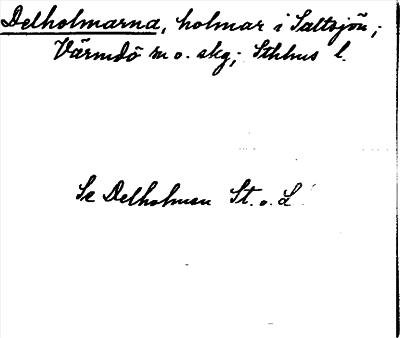 Delholmarna, holmar i Saltsjön;
Värmdö sn o. skg; Sthlms l.
Se Delholmen St. o. L.